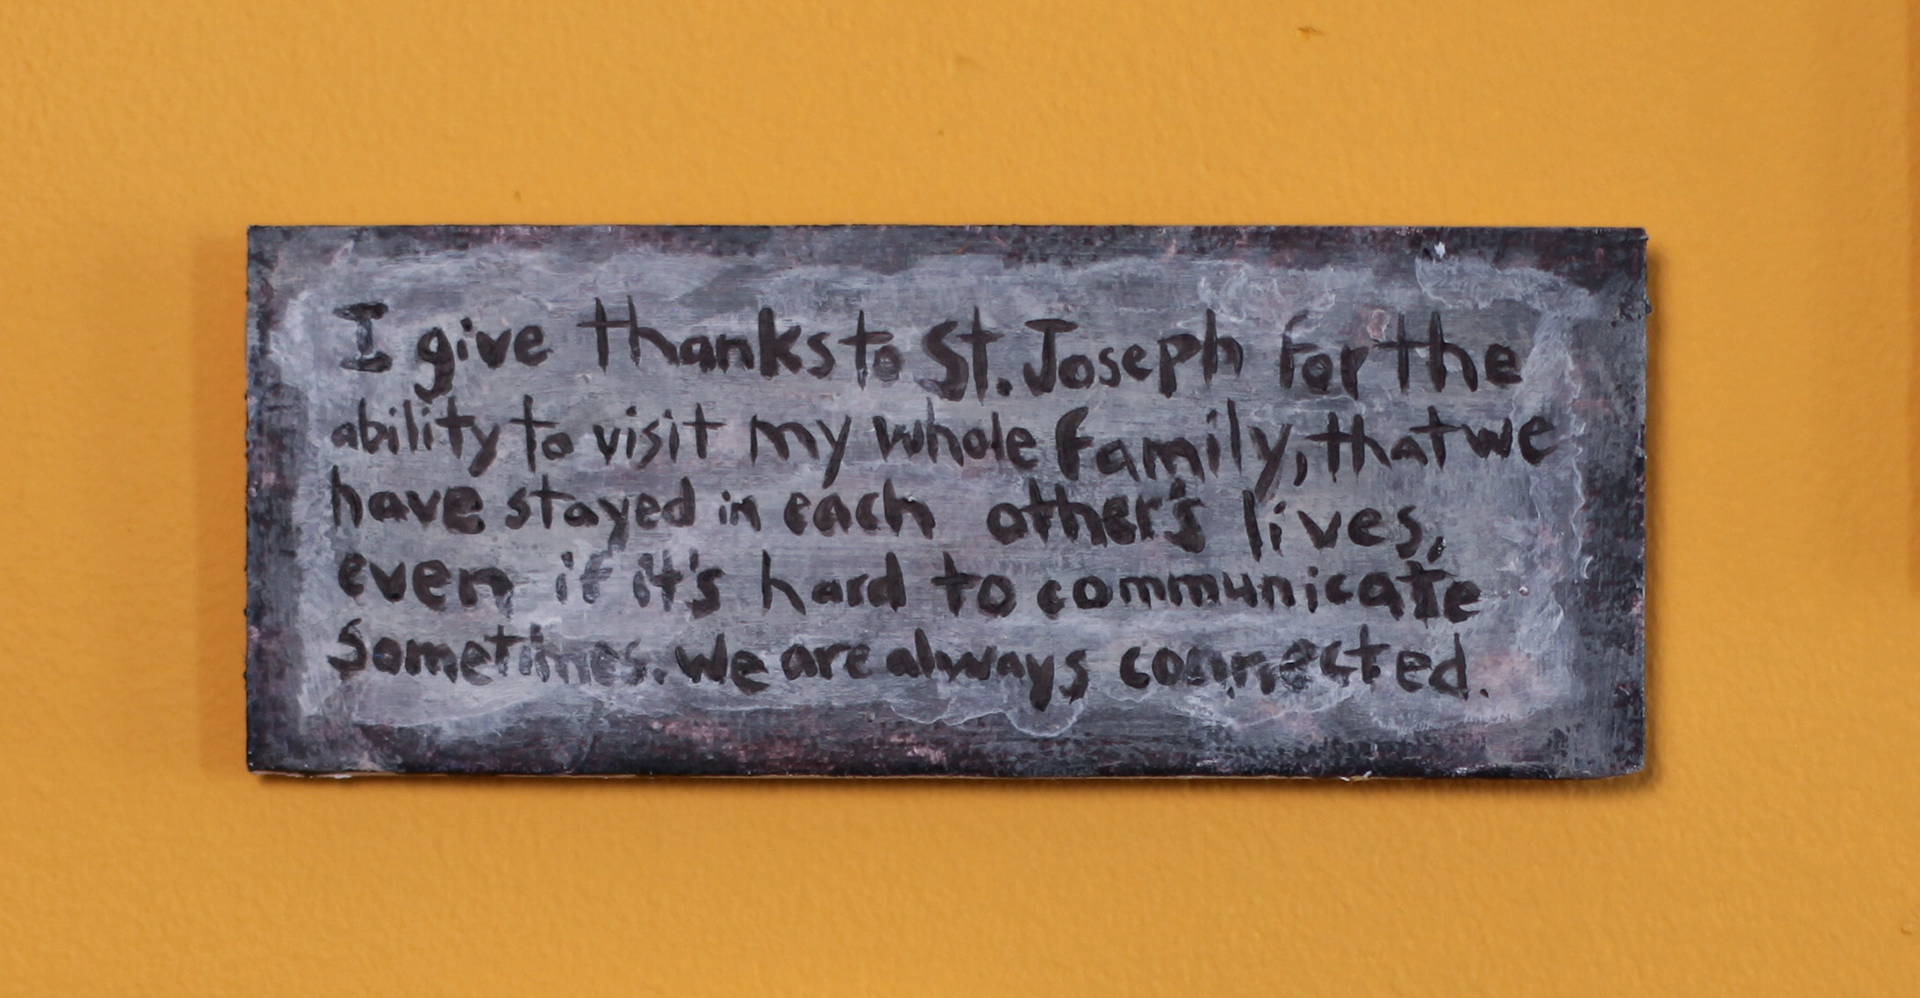 I give thanks to St. Joseph for the
ability to visit my whole family, that we
have stayed in each other's lives,
even if it's hard to communicate
sometimes. We are always connected.